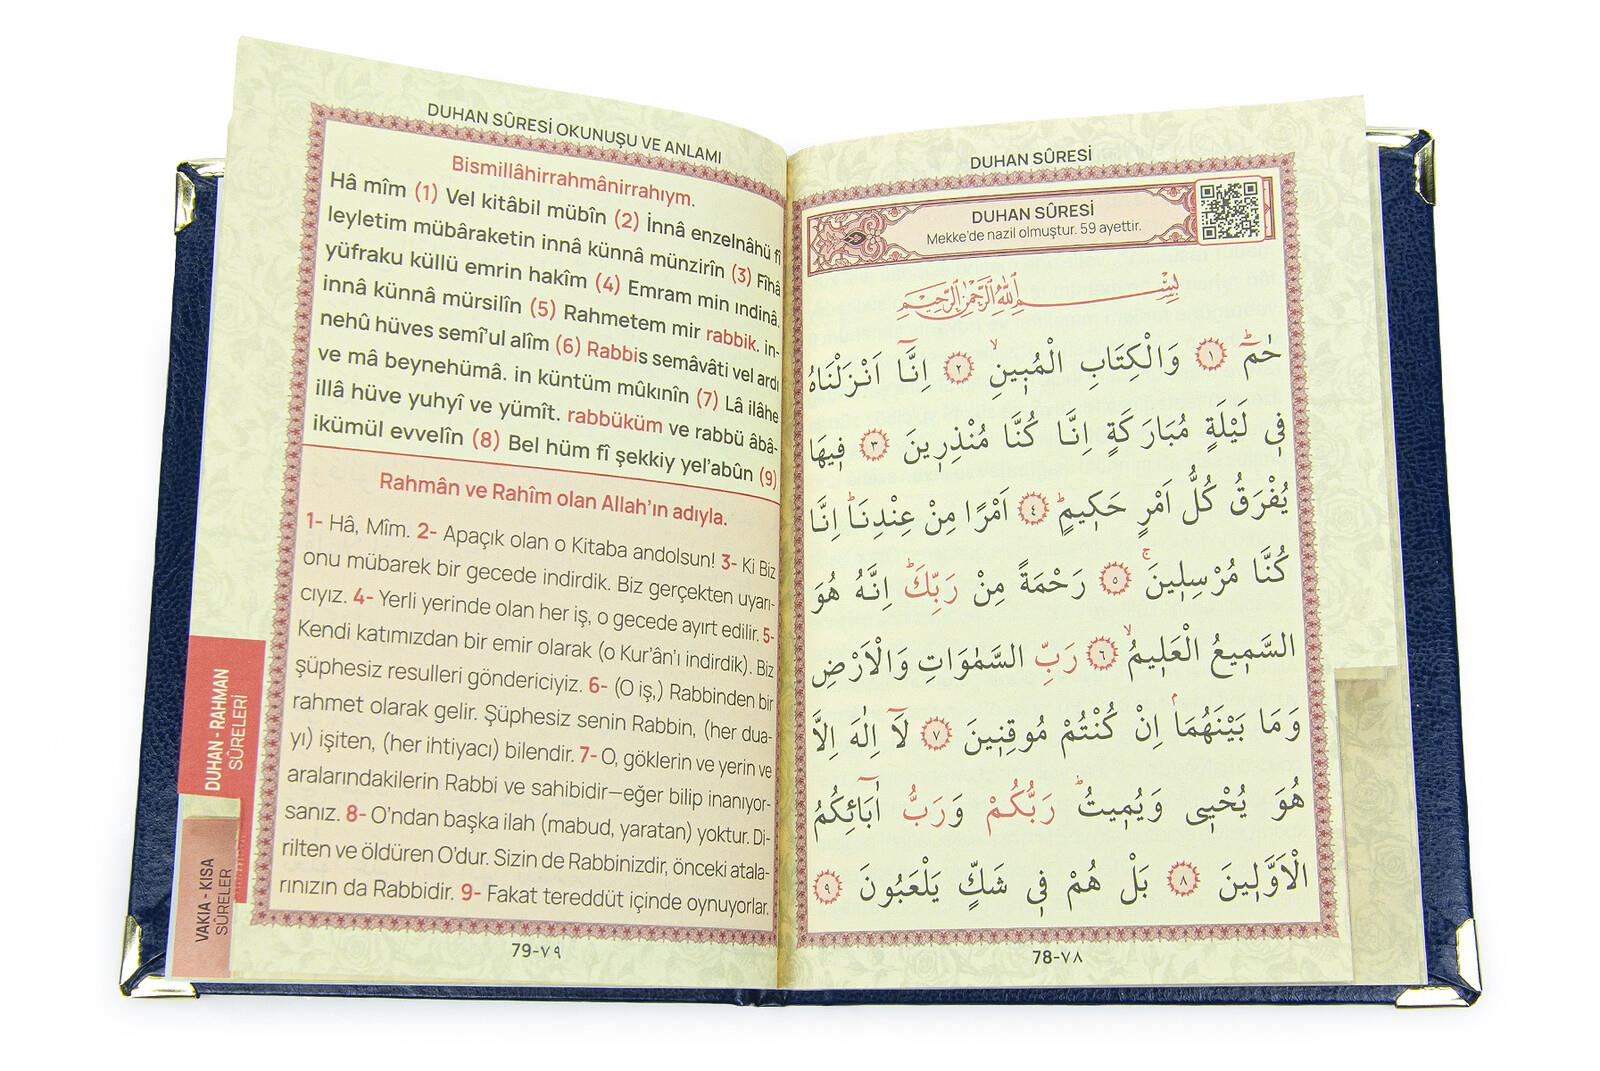 DUHAN SÛRESİ OKUNUŞU VE ANLAMI
Bismillâhirrahmânirrahıym.
Hâ mîm (1) Vel kitâbil mübîn (2) İnnâ enzelnâhü fî
leyletim mübâraketin innâ künnâ münzirîn (3) Fîhâ
yüfraku küllü emrin hakîm (4) Emram min ındinâ.
innâ künnâ mürsilîn (5) Rahmetem mir rabbik. in-
nehû hüves semî’ul alîm (6) Rabbis semâvâti vel ardı
ve mâ beynehümâ. in küntüm mûkınîn (7) Lâ ilâhe
illâ hüve yuhyî ve yümît. rabbüküm ve rabbü âbâ-
ikümül evvelîn (8) Bel hüm fî şekkiy yel’abûn (9)
Rahmân ve Rahîm olan Allah’ın adıyla.
1- Hâ, Mîm. 2- Apaçık olan o Kitaba andolsun! 3- Ki Biz
onu mübarek bir gecede indirdik. Biz gerçekten uyarı-
cıyız. 4- Yerli yerinde olan her iş, o gecede ayırt edilir. 5-
Kendi katımızdan bir emir olarak (o Kur’ân’ı indirdik). Biz
şüphesiz resulleri göndericiyiz. 6- (O iş,) Rabbinden bir
rahmet olarak gelir. Şüphesiz senin Rabbin, (her dua-
yı) işiten, (her ihtiyacı) bilendir. 7- O, göklerin ve yerin ve
aralarındakilerin Rabbi ve sahibidir—eğer bilip inanıyor-
sanız. 8- O’ndan başka ilah (mabud, yaratan) yoktur. Di-
rilten ve öldüren O’dur. Sizin de Rabbinizdir, önceki atala-
rınızın da Rabbidir. 9- Fakat tereddüt içinde oynuyorlar.
79-٧٩
DUHAN - RAHMAN
SÛRELERİ
VAKIA - KISA
SÛRELER
DUHAN SÛRESİ
DUHAN SÛRESİ
Mekke’de nazil olmuştur. 59 ayettir.
بِسْمِ اللّٰهِ الرَّحْمٰنِ الرَّحِيمِ
حٰمٓ ۜ ﴿١﴾ وَالْكِتَابِ الْمُب۪ينِۙ ﴿٢﴾ اِنَّٓا اَنْزَلْنَاهُ
ف۪ي لَيْلَةٍ مُبَارَكَةٍ اِنَّا كُنَّا مُنْذِر۪ينَ ﴿٣﴾ ف۪يهَا
يُفْرَقُ كُلُّ اَمْرٍ حَك۪يمٍۜ ﴿٤﴾ اَمْرًا مِنْ عِنْدِنَاۜ اِنَّا
كُنَّا مُرْسِل۪ينَۚ ﴿٥﴾ رَحْمَةً مِنْ رَبِّكَۜ اِنَّهُ هُوَ
السَّم۪يعُ الْعَل۪يمُۙ ﴿٦﴾ رَبِّ السَّمٰوَاتِ وَالْاَرْضِ
وَمَا بَيْنَهُمَاۢ اِنْ كُنْتُمْ مُوقِن۪ينَ ﴿٧﴾ لَٓا اِلٰهَ اِلَّا
هُوَ يُحْي۪ي وَيُم۪يتُۜ رَبُّكُمْ وَرَبُّ اٰبَٓائِكُمُ
الْاَوَّل۪ينَ ﴿٨﴾ بَلْ هُمْ ف۪ي شَكٍّ يَلْعَبُونَ ﴿٩﴾
78-٧٨